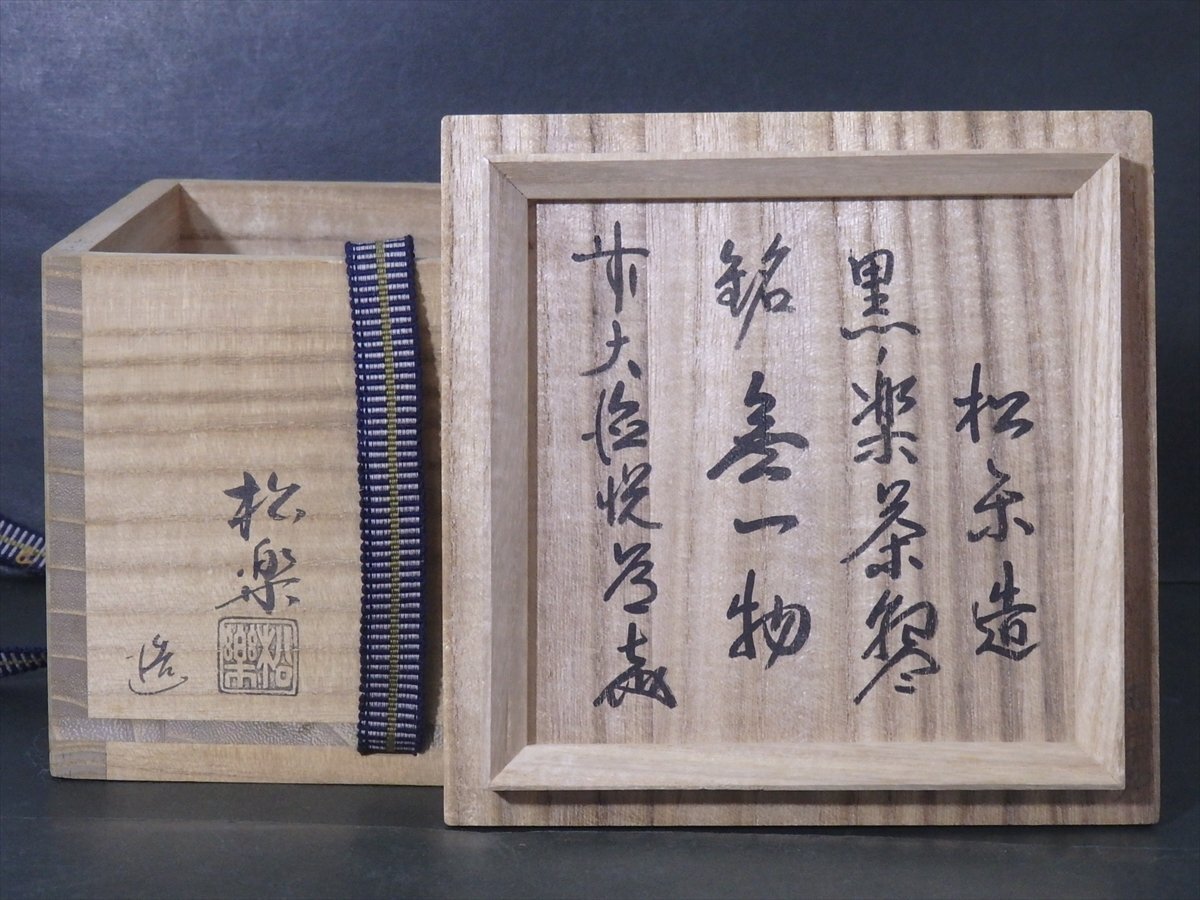 松楽造
黒楽茶碗
銘 無一物
前大徳悦道
松楽
造
松樂